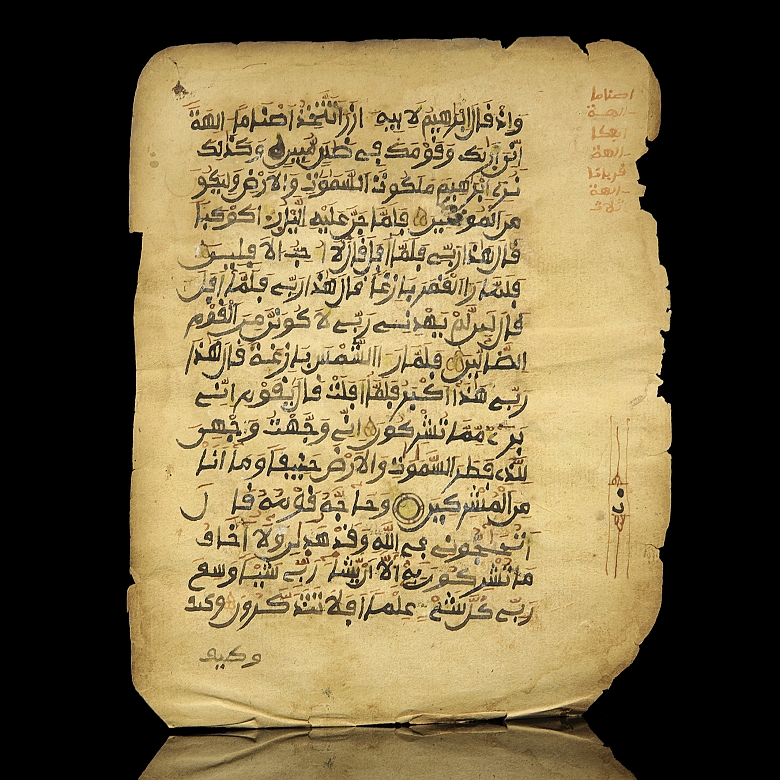 وإذ قال إبرهيم لابيه ازر اتتخذ اصناما الهة
اني اريك وقومك في ضلل مبين وكذلك
نري ابرهيم ملكوت السموت والارض وليكو
من الموقنين فلما جن عليه اليل را كوكبا
قال هذا ربي فلما افل قال لا احب الافلين
فلما را القمر بازغا قال هذا ربي فلما افل
قال لين لم يهدني ربي لاكونن من القوم
الضالين فلما را الشمس بازغة قال هذا
ربي هذا اكبر فلما افلت قال يقوم اني
بريء مما تشركون اني وجهت وجهي
للذي فطر السموت والارض حنيفا وما انا
من المشركين وحاجه قومه قال
اتحجوني في الله وقد هدين ولا اخاف
ما تشركون به الا ان يشا ربي شيا وسع
ربي كل شيء علما افلا تتذكرون وكيف
وكيف
اصناما
الهة
الهكا
الهة
قربانا
الهة
ثلاث